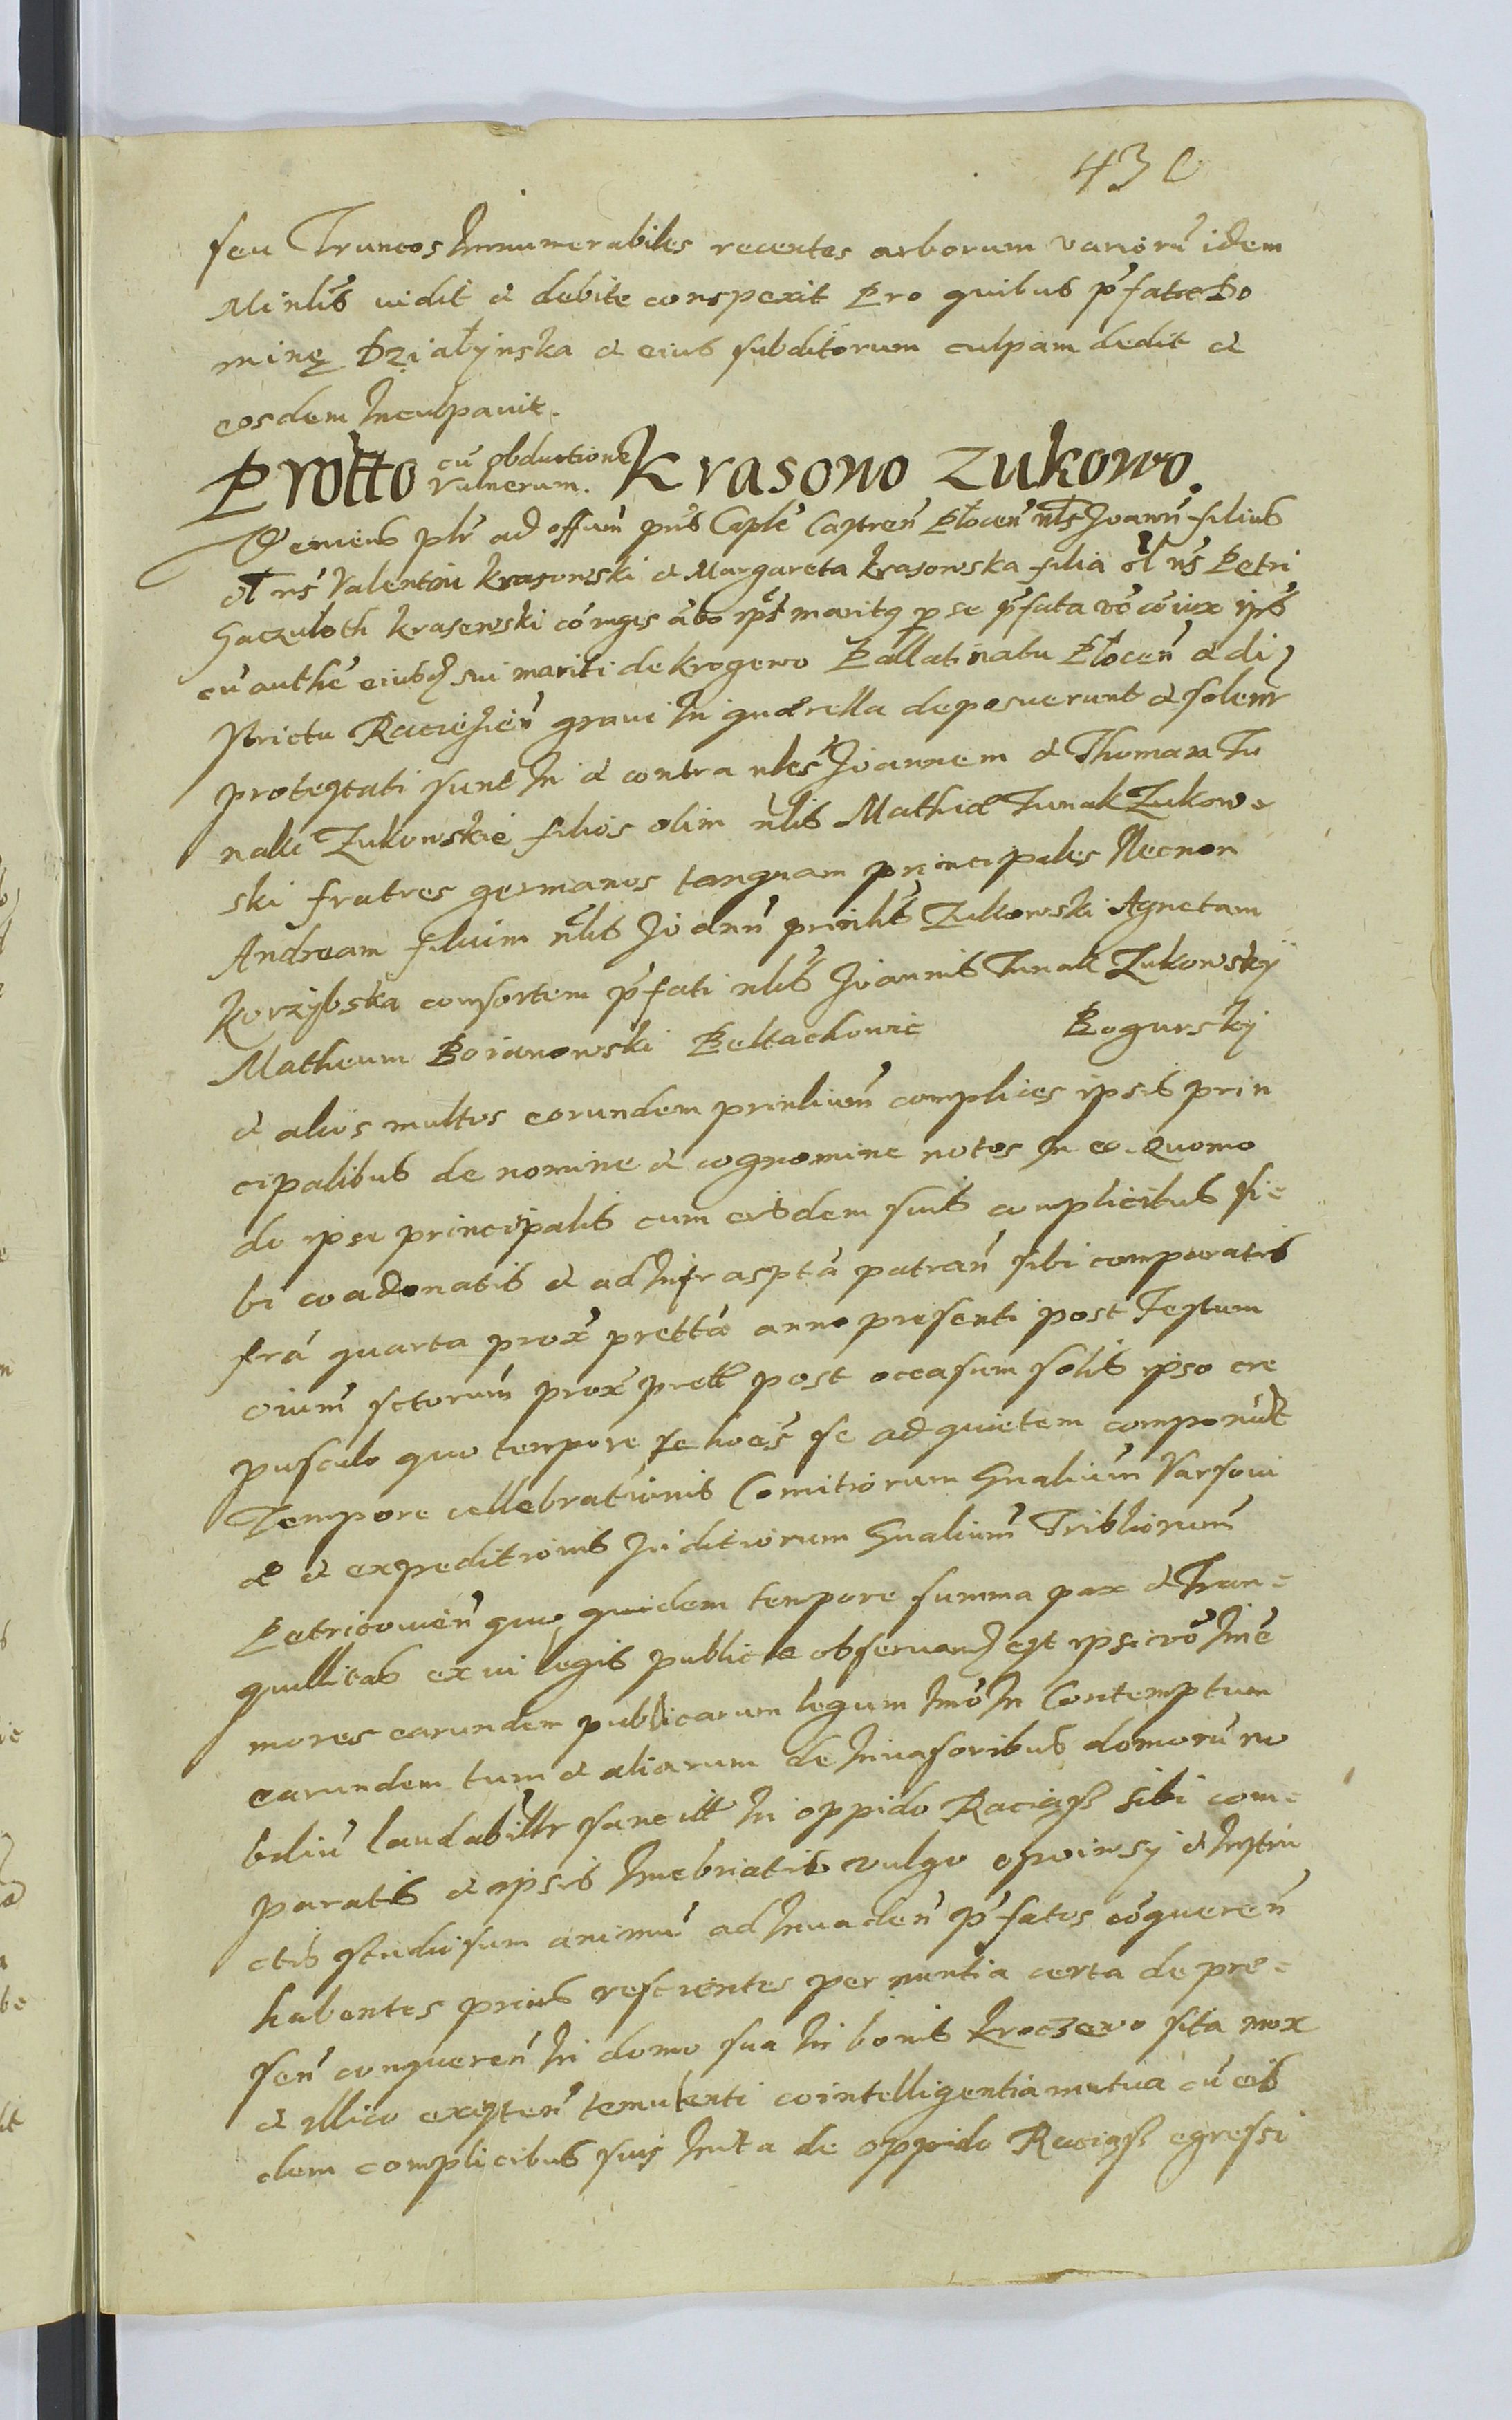 430
seu Truncos Innumerabiles recentes arborum varioru idem
Minlis vidit et debite conspexit Pro quibus pfatæ Do
minę Działÿnska et eius subditorum culpam dedit et
eosdem Inculpavit.
Protto cu obductione vulnerum. Krasowo Zukowo.
Veniens plr ad offium pns Caple Castren Płocen nls Joann filius
ol ns Valentini Krasowski et Margareta Krasowska filia ol ns Petri
Gaczuloth Krasewski coniuges abo ipse maritq p se pfata vo coniux ips
cu authe eiusd sui mariti de Krogewo Pallatinatu Płocen et di
strictu Raciezien gravi In quærella deposuerunt et solenr
protestati sunt In et contra nles Joannem et Thomam Tu
nak Zukowskie filios olim nlis Mathiæ Tunak Zukow=
ski fratres germanos tanquam principales Necnon
Andream filium nlis Joann prinlis Zukowski Agnetam
Korzÿbska consortem pfati nlis Joannis Tunak Zukowskÿ
Matheum Boianowski Peltachowic Bogurskÿ
et alios multos eorundem prinlium complices ipsis prin
cipalibus de nomine et cognomine notos In eo. Quomo
do ipse principalis cum eisdem suis complicibus si=
bi coadonatis et ad Infraspta patran sibi comparatis
fra quarta prox pretta anno presenti post Festum
oium sctorum prox prett post occasum solis ipso cre
pusculo quo tempore se hoes se ad quietem componut
Tempore cellebrationis Comitiorum Gnalium Varsovi
æ et expeditionis Juditiorum Gnalium Tribliorum
Petricovien quo quidem tempore summa pax et Tran=
quillitas ex vi legis publicæ observand est ipsi vo Ime
mores earundem publicarum legum Imo In Contemptum
earundem tum et aliarum de Invasoribus domoru no
biliu laudabilr sancitt In oppido Raciąss sibi com=
paratis et ipsis Inebriatis vulgo opoiwsÿ et Instru
ctis studiisum animu ad Invaden pfatos coqueren
habentes prius rescientes per nuntia certa de pre=
sen conqueren In domo sua In bonis Kroczewo sita mox
et illico existen temulenti cointelligentia mutua cu eis
dem complicibus suis Inita de oppido Raciąss egressi